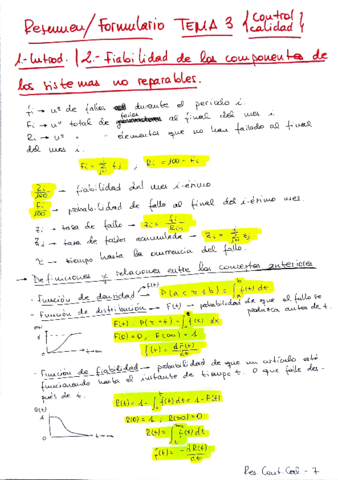 Resumen/Formulario TEMA 3 {Control calidad}
1.-Introd. / 2.-Fiabilidad de los componentes de
los sistemas no reparables.
fi → nº de fallos durante el periodo i.
Fi → nº total de fallos al final del mes i
Ri → nº - elementos que no han fallado al final
del mes i.
Fi = Σ fj , Ri = 100 - Fi
Ri/100 - fiabilidad del mes i-ésimo
Fi/100 - probabilidad de fallo al final del i-ésimo mes.
zi - tasa de fallo - zi = fi/Ri-1
Zi - tasa de fallos acumulada - Zi = Σ zj
τ - tiempo hasta la ocurrencia del fallo.
→ Definiciones y relaciones entre los conceptos anteriores
- Función de densidad → f(t) P(a<τ<b) = ∫ f(t) dt
- Función de distribución - F(t) - probabilidad de que el fallo se
produzca antes de t.
F(t) = P(τ<t) = ∫ f(x) dx
F(0) = 0, F(∞) = 1
f(t) = dF(t)/dt
t→∞
- Función de fiabilidad - probabilidad de que un artículo esté
funcionando hasta el instante de tiempo t. O que falle des-
pués de t.
R(t)
R(t) = 1 - ∫ f(t) dt = 1 - F(t)
R(0) = 1, R(∞) = 0
R(t) = ∫ f(t) dt
f(t) = -dR(t)/dt
t→∞
Res. Cont. Cal - 7